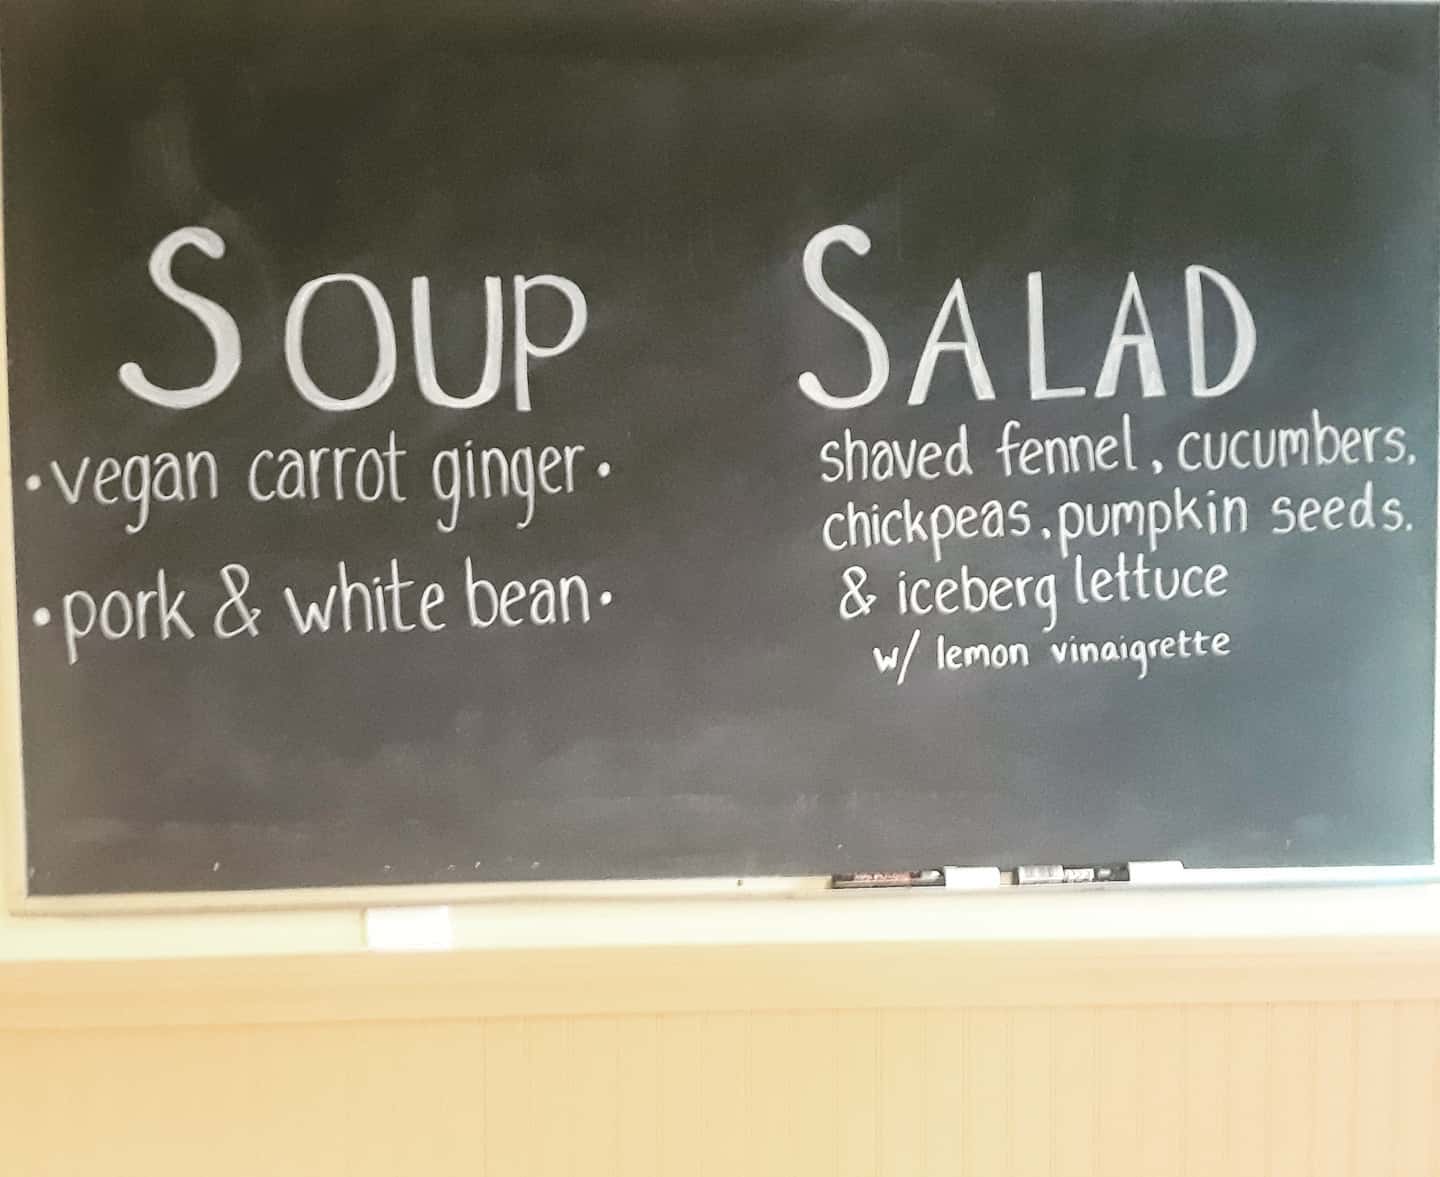 SOUP
·vegan carrot ginger·
·pork & white bean·
SALAD
shaved fennel, cucumbers,
chickpeas, pumpkin seeds,
& iceberg lettuce
w/ lemon vinaigrette